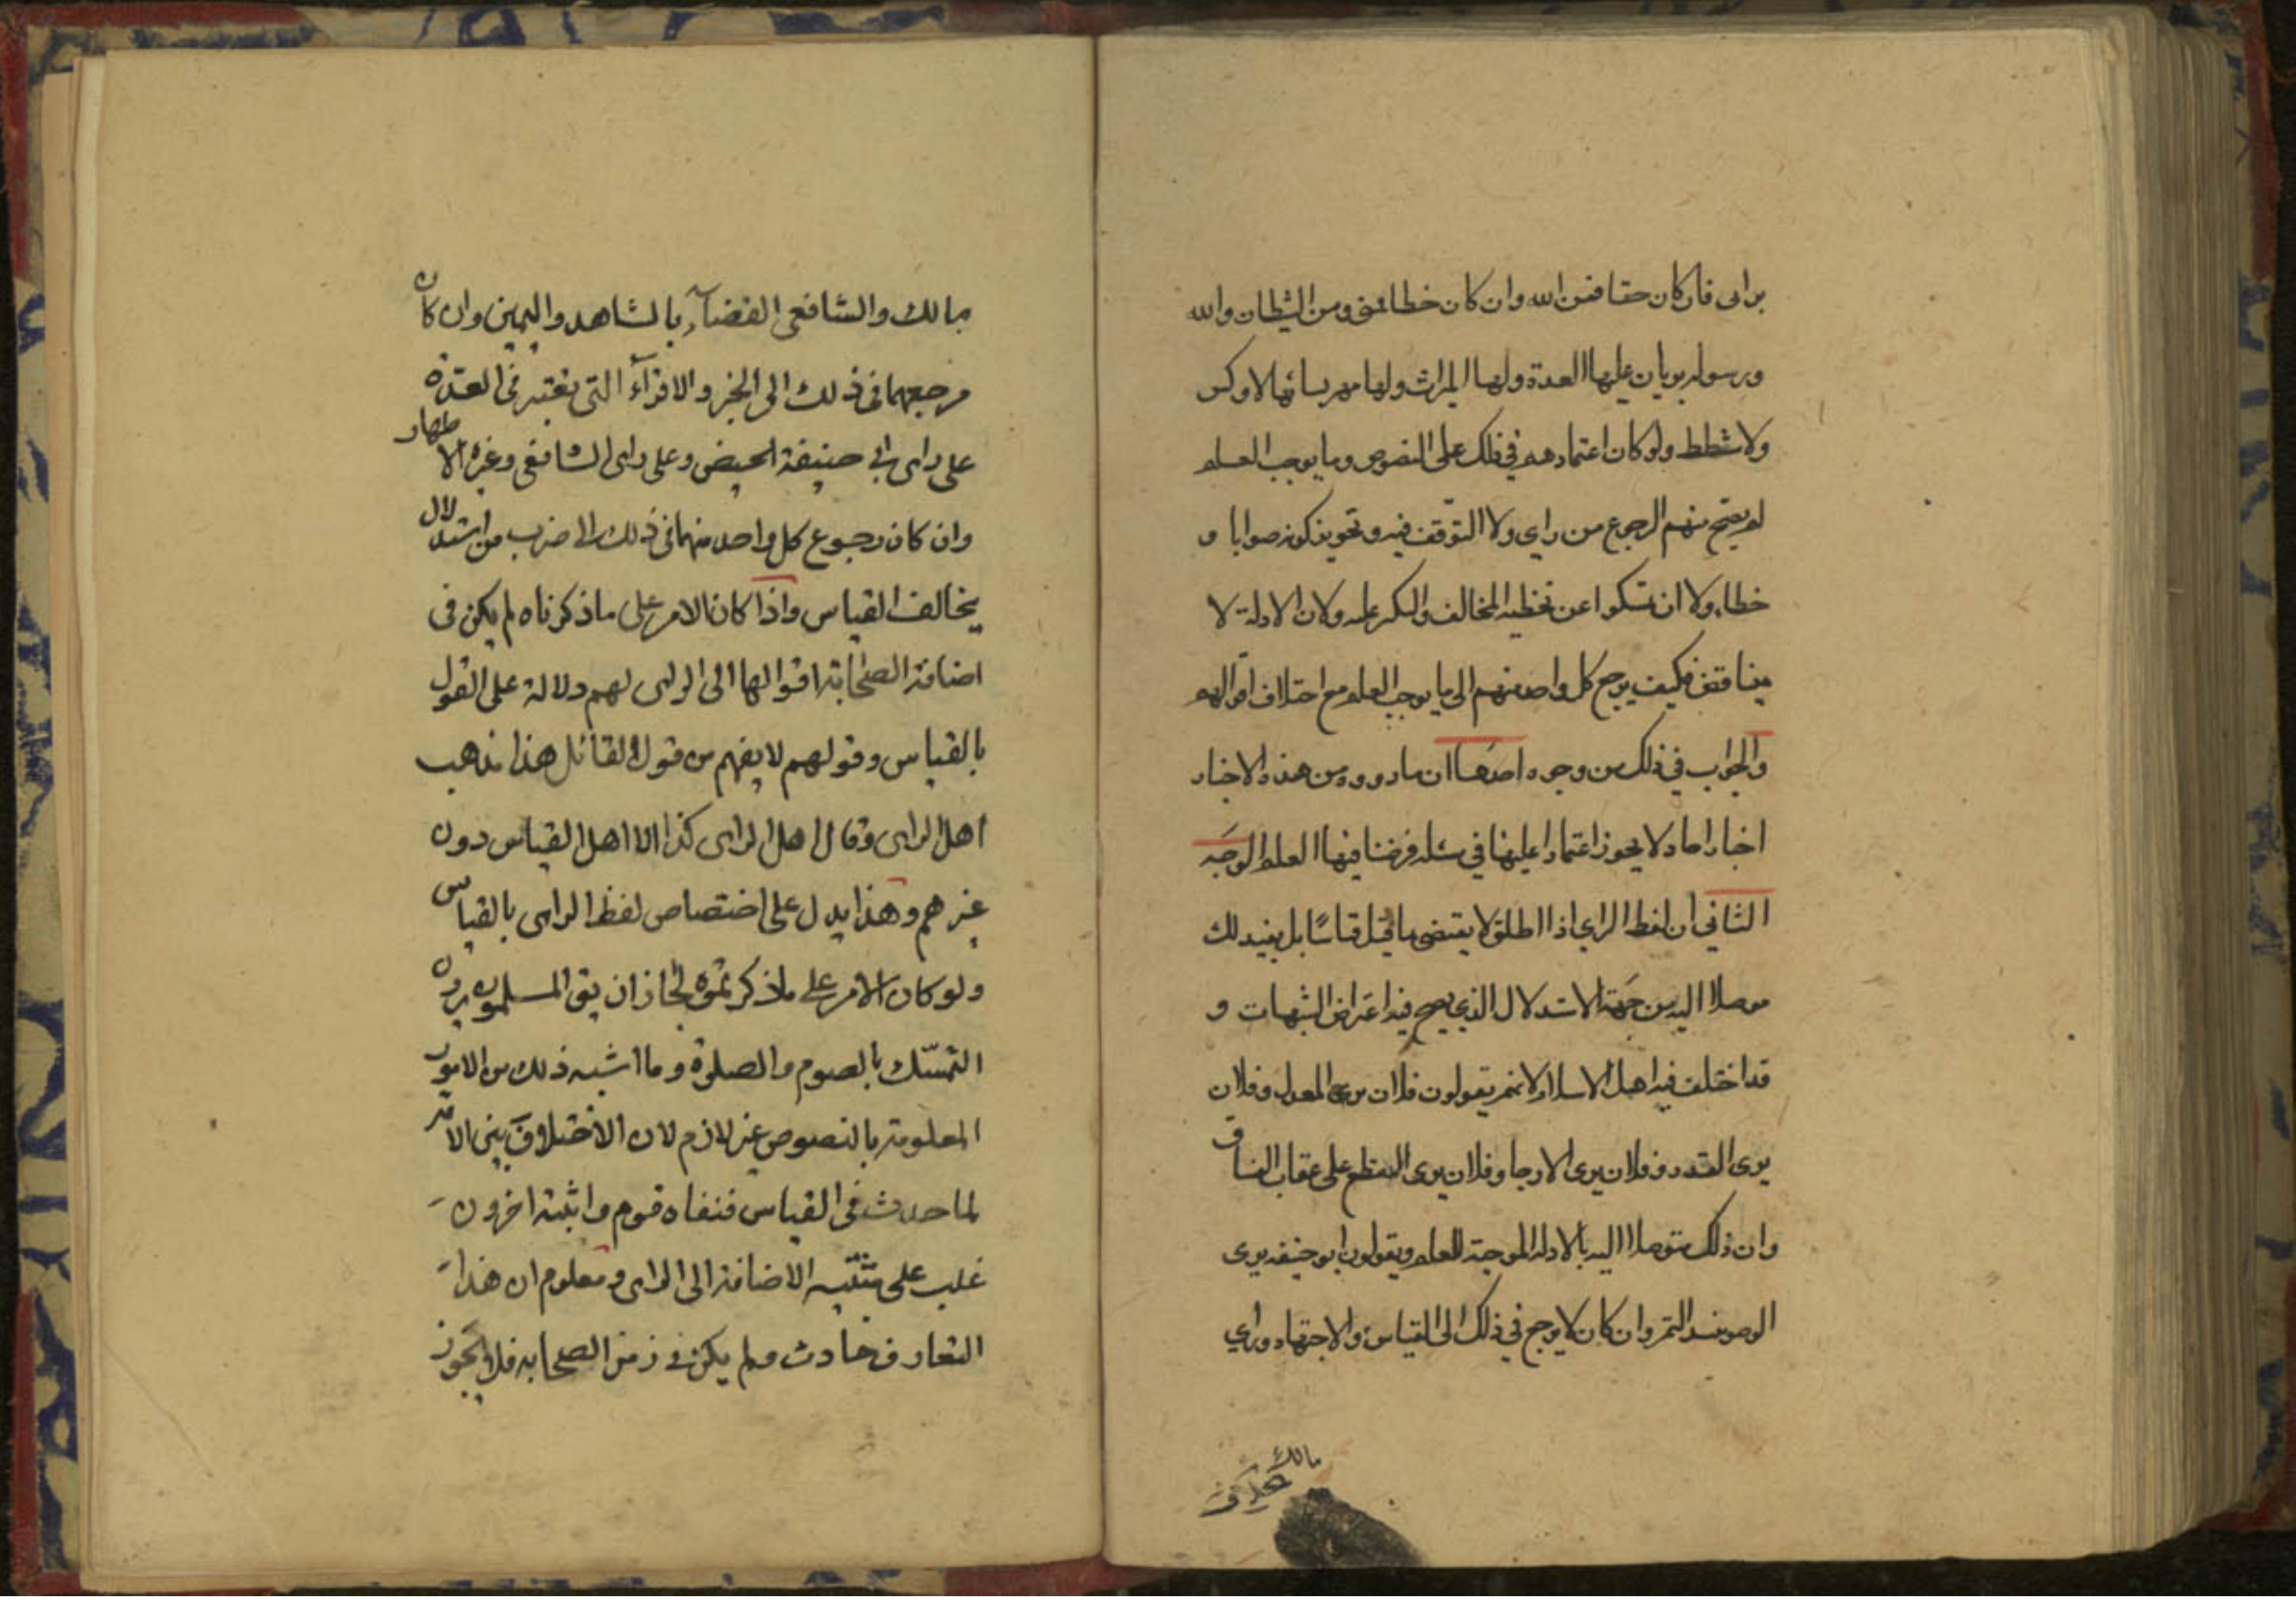 برأى فان كان حقا فمن الله وان كان خطا فمنى ومن الشيطان والله
ورسوله بريان عليها العدة ولها الميراث ولها مهر نسائها لا وكس
ولا شطط ولو كان اعتمادهم في ذلك على النصوص وما يوجب العلم
لم يصح منهم الرجوع من راي ولا التوقف فيه وتجويز كونه صوابا و
خطاء ولا ان تمسكوا عن تخطيه المخالف والنكير عليه ولان الادلة لا
يتناقض فكيف يرجع كل واحد منهم الى ما يوجب العلم مع اختلاف اقوالهم
والجواب في ذلك من وجوه احدها ان ما رووه من هذه الاخبار
اخبار احاد لا يجوز اعتماد عليها في مسئله فرضنا فيها العلم الوجه
الثاني ان لفظ الراي اذا اطلق لا يقتضى ما قيل قياسًا بل يفيد لك
موصلا اليه من جهة الاستدلال الذي يصح فيه اعتراض الشبهات و
قد اختلف فيه اهل الاسلام لانهم يقولون فلان يرى العدل وفلان
يرى القدر وفلان يرى الارجا وفلان يرى القطع على عقاب الفساق
وان ذلك متوصلا اليه بالادلة الموجبة للعلم ويقولون ابو حنيفه يرى
الوضو بنبيذ التمر وان كان لا يرجع في ذلك الى القياس والاجتهاد وراي
مالك
مالك والشافعى القضآء بالشاهد واليمين وان كان
مرجعهما فى ذلك الى الخبر والاقرآء التى تعتبر فى العدّة
على راى ابى حنيفة الحيض وعلى راى الشافعى وغيره الاطهار
وان كان رجوع كل واحد منهما فى ذلك الى ضرب من استدلال
يخالف القياس واذا كان الامر على ما ذكرناه لم يكن فى
اضافة الصحابة اقوالها الى الراى لهم دلالة على القول
بالقياس وقولهم لا يفهم من قول القائل هذا مذهب
اهل الراى وقال اهل الراى كذا الا اهل القياس دون
غيرهم وهذا يدل على اختصاص لفظ الراى بالقياس
ولو كان الامر على ما ذكرتموه لجاز ان يق المسلمون يرون
التمسّك بالصوم والصلوة وما اشبه ذلك من الامور
المعلومة بالنصوص غير لازم لان الاختلاف بين الامّة
لما حدث فى القياس فنفاه قوم واثبته اخرون
غلب على مثبتيه الاضافة الى الراى ومعلوم ان هذا
التعارف حادث ولم يكن فى زمن الصحابه فلا يجوز